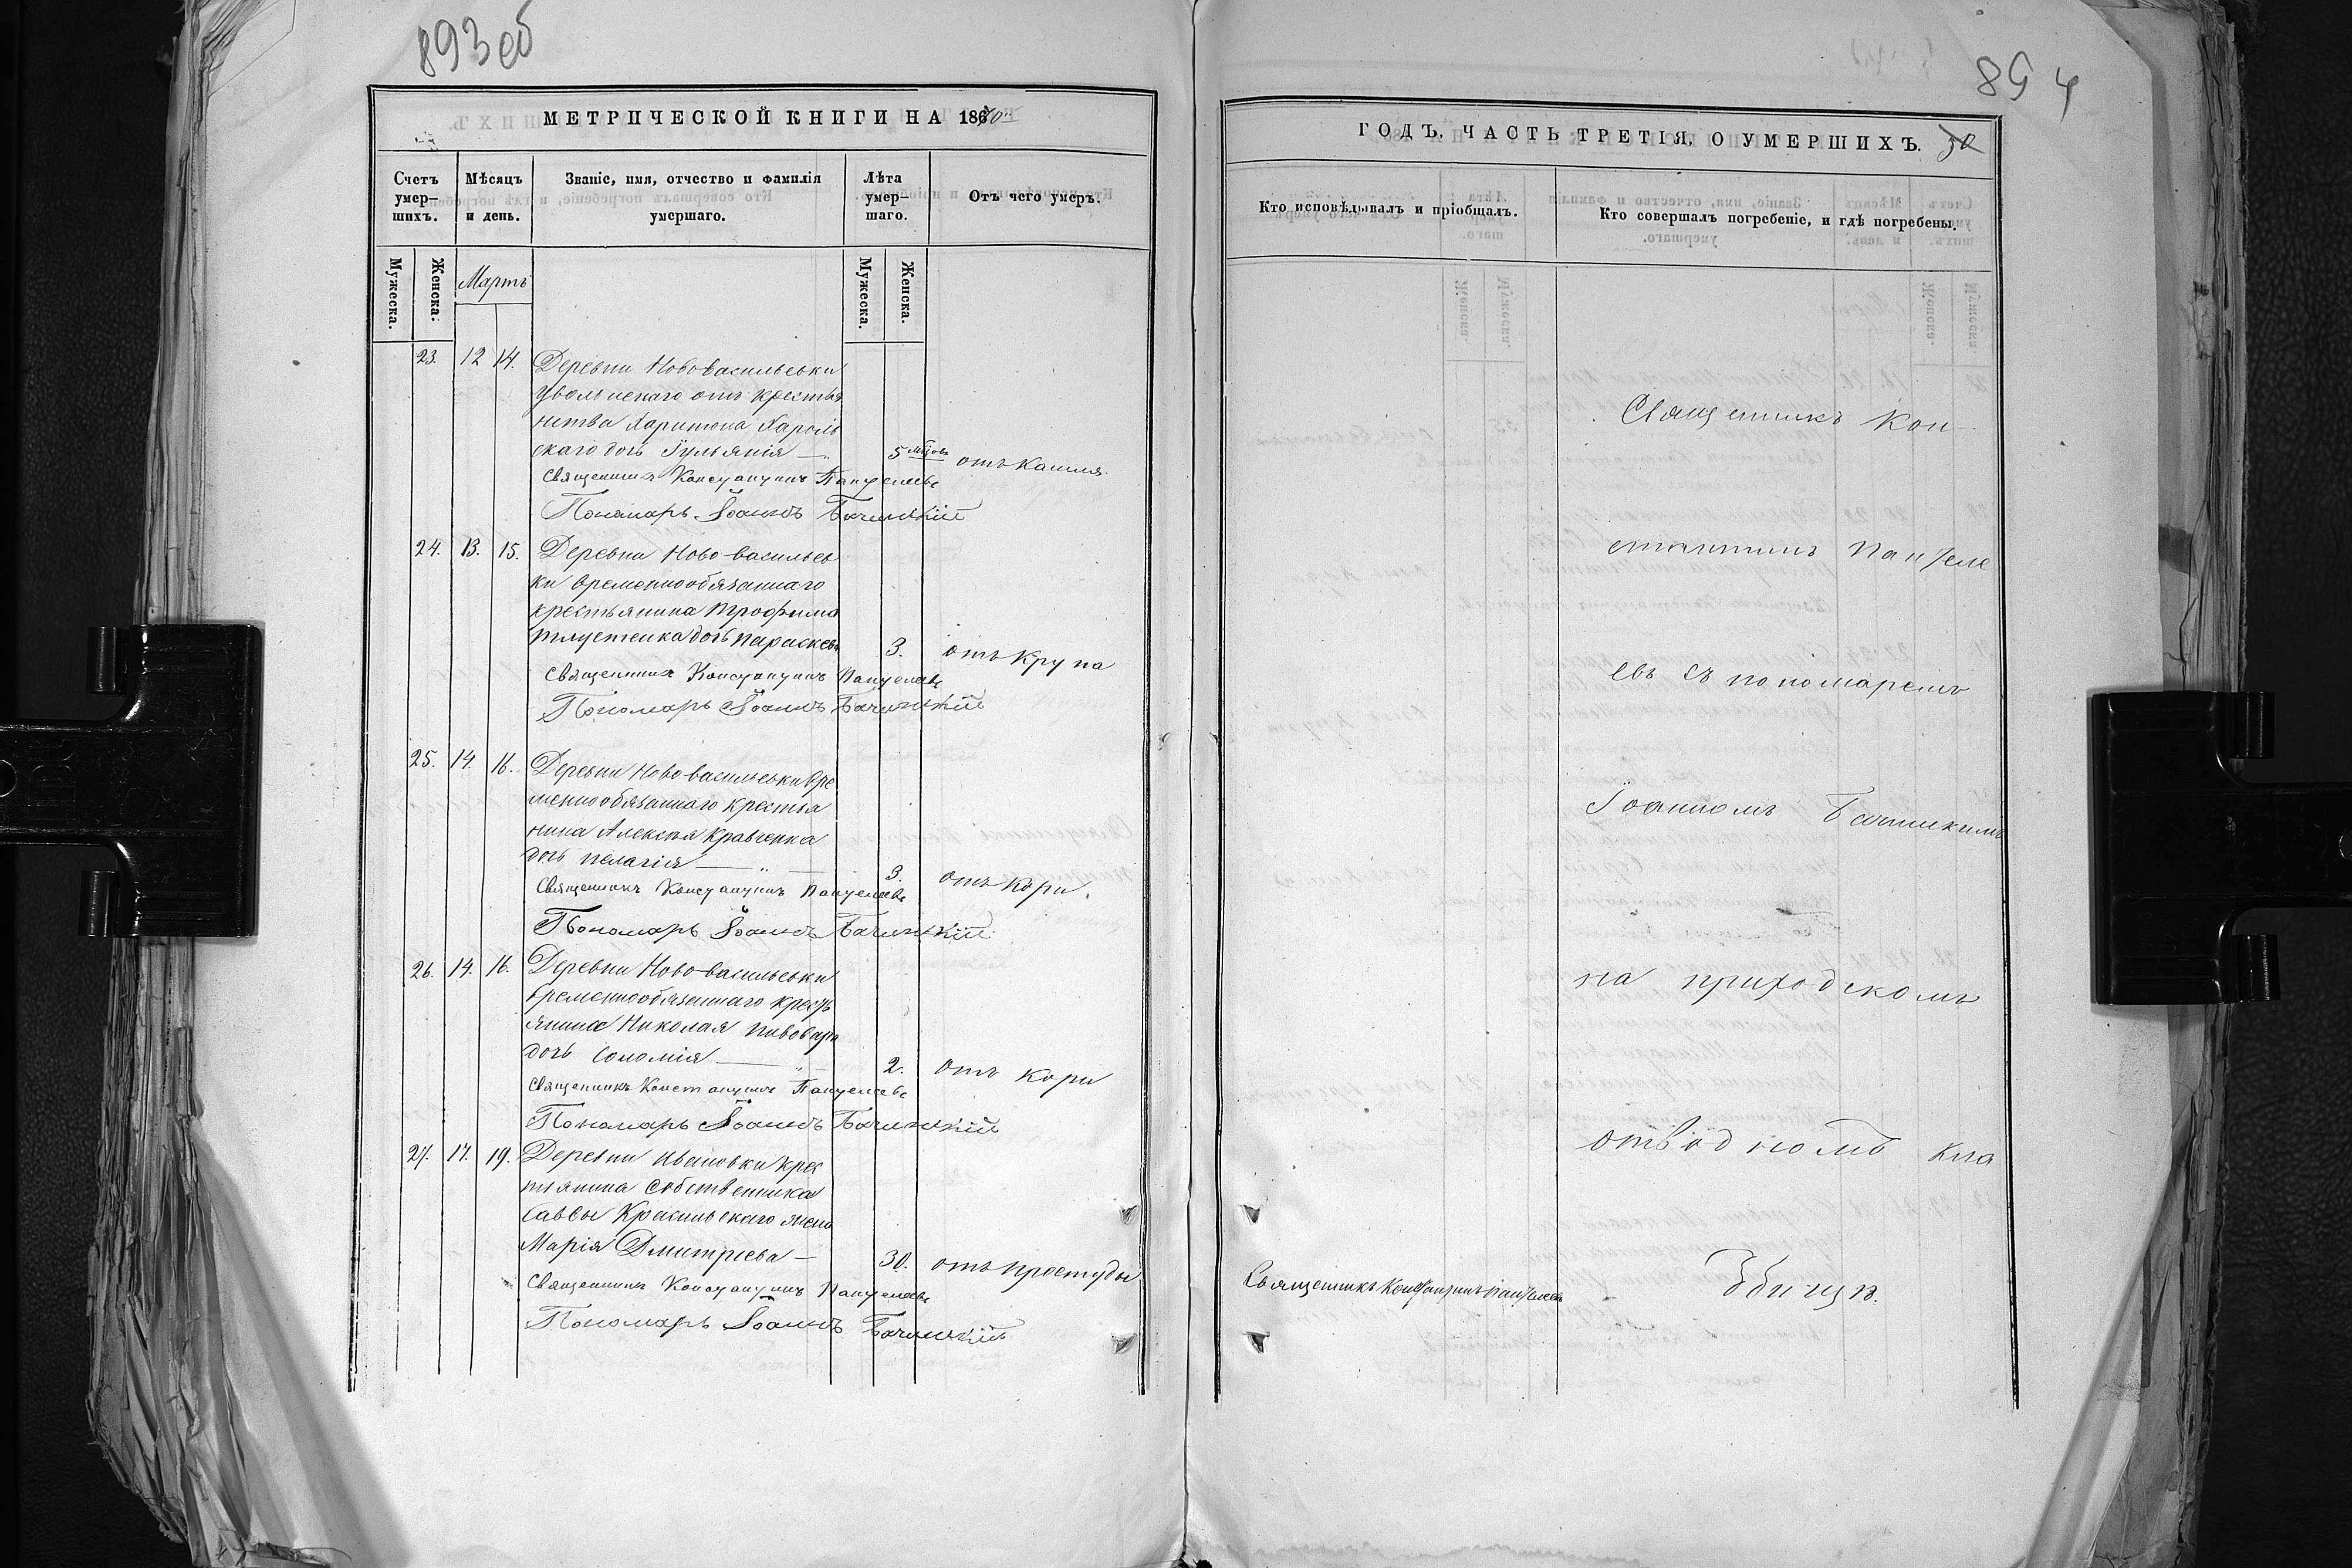 893 об
МЕТРИЧЕСКОЙ КНИГИ НА 1870
Счетъ умер-шихъ.
Мѣсяцъ и день.
Званіе, имя, отчество и фамилія умершаго.
Лѣта умер-шаго.
Отъ чего умеръ.
Мужеска.
Женска.
Мартъ
Мужеска.
Женска.
23. 12 14. Деревни Нововасильевки
увольнскаго отъ крестья
нства Харитона Хароль
скаго дочь Іульянія — 5 мцовъ отъ кашля.
Священникъ Константинъ Пантелеевъ
Пономарь Іоаннъ Бачинскій
24. 13. 15. Деревни Ново-васильев
ки временнообязаннаго
крестьянина Трофима
дочь Параскев 3. отъ крупа
Священникъ Константинъ Пантелеевъ
Пономарь Іоаннъ Бачинскій
25. 14. 16. Деревни Нововасильевки вре
меннообязаннаго крестья
нина Алексѣя Кравченка
дочь Пелагія — 3. отъ кори.
Священникъ Константинъ Пантелеевъ
Пономарь Іоаннъ Бачинскій
26. 14. 16. Деревни Ново-васильевки
временнообязаннаго кресть
янина Николая Пивовара
дочь Соломія — 2. отъ кори
Священникъ Константинъ Пантелеевъ
Пономарь Іоаннъ Бачинскій
27. 17. 19. Деревни Ивановки крес
тьянина собственника
Саввы Красильскаго жена
Марія Дмитріева — 30. отъ простуды
Священникъ Константинъ Пантелеевъ
Пономарь Іоаннъ Бачинскій
894
ГОДЪ, ЧАСТЬ ТРЕТІЯ, О УМЕРШИХЪ. 30
Кто исповѣдывалъ и пріобщалъ.
Кто совершалъ погребеніе, и гдѣ погребены.
Священникъ Кон-
стантинъ Пантеле
евъ съ пономаремъ
Іоанномъ Бачинскимъ
на приходскомъ
отводномъ кла
Священникъ Константинъ Пантелеевъ
дбищѣ.